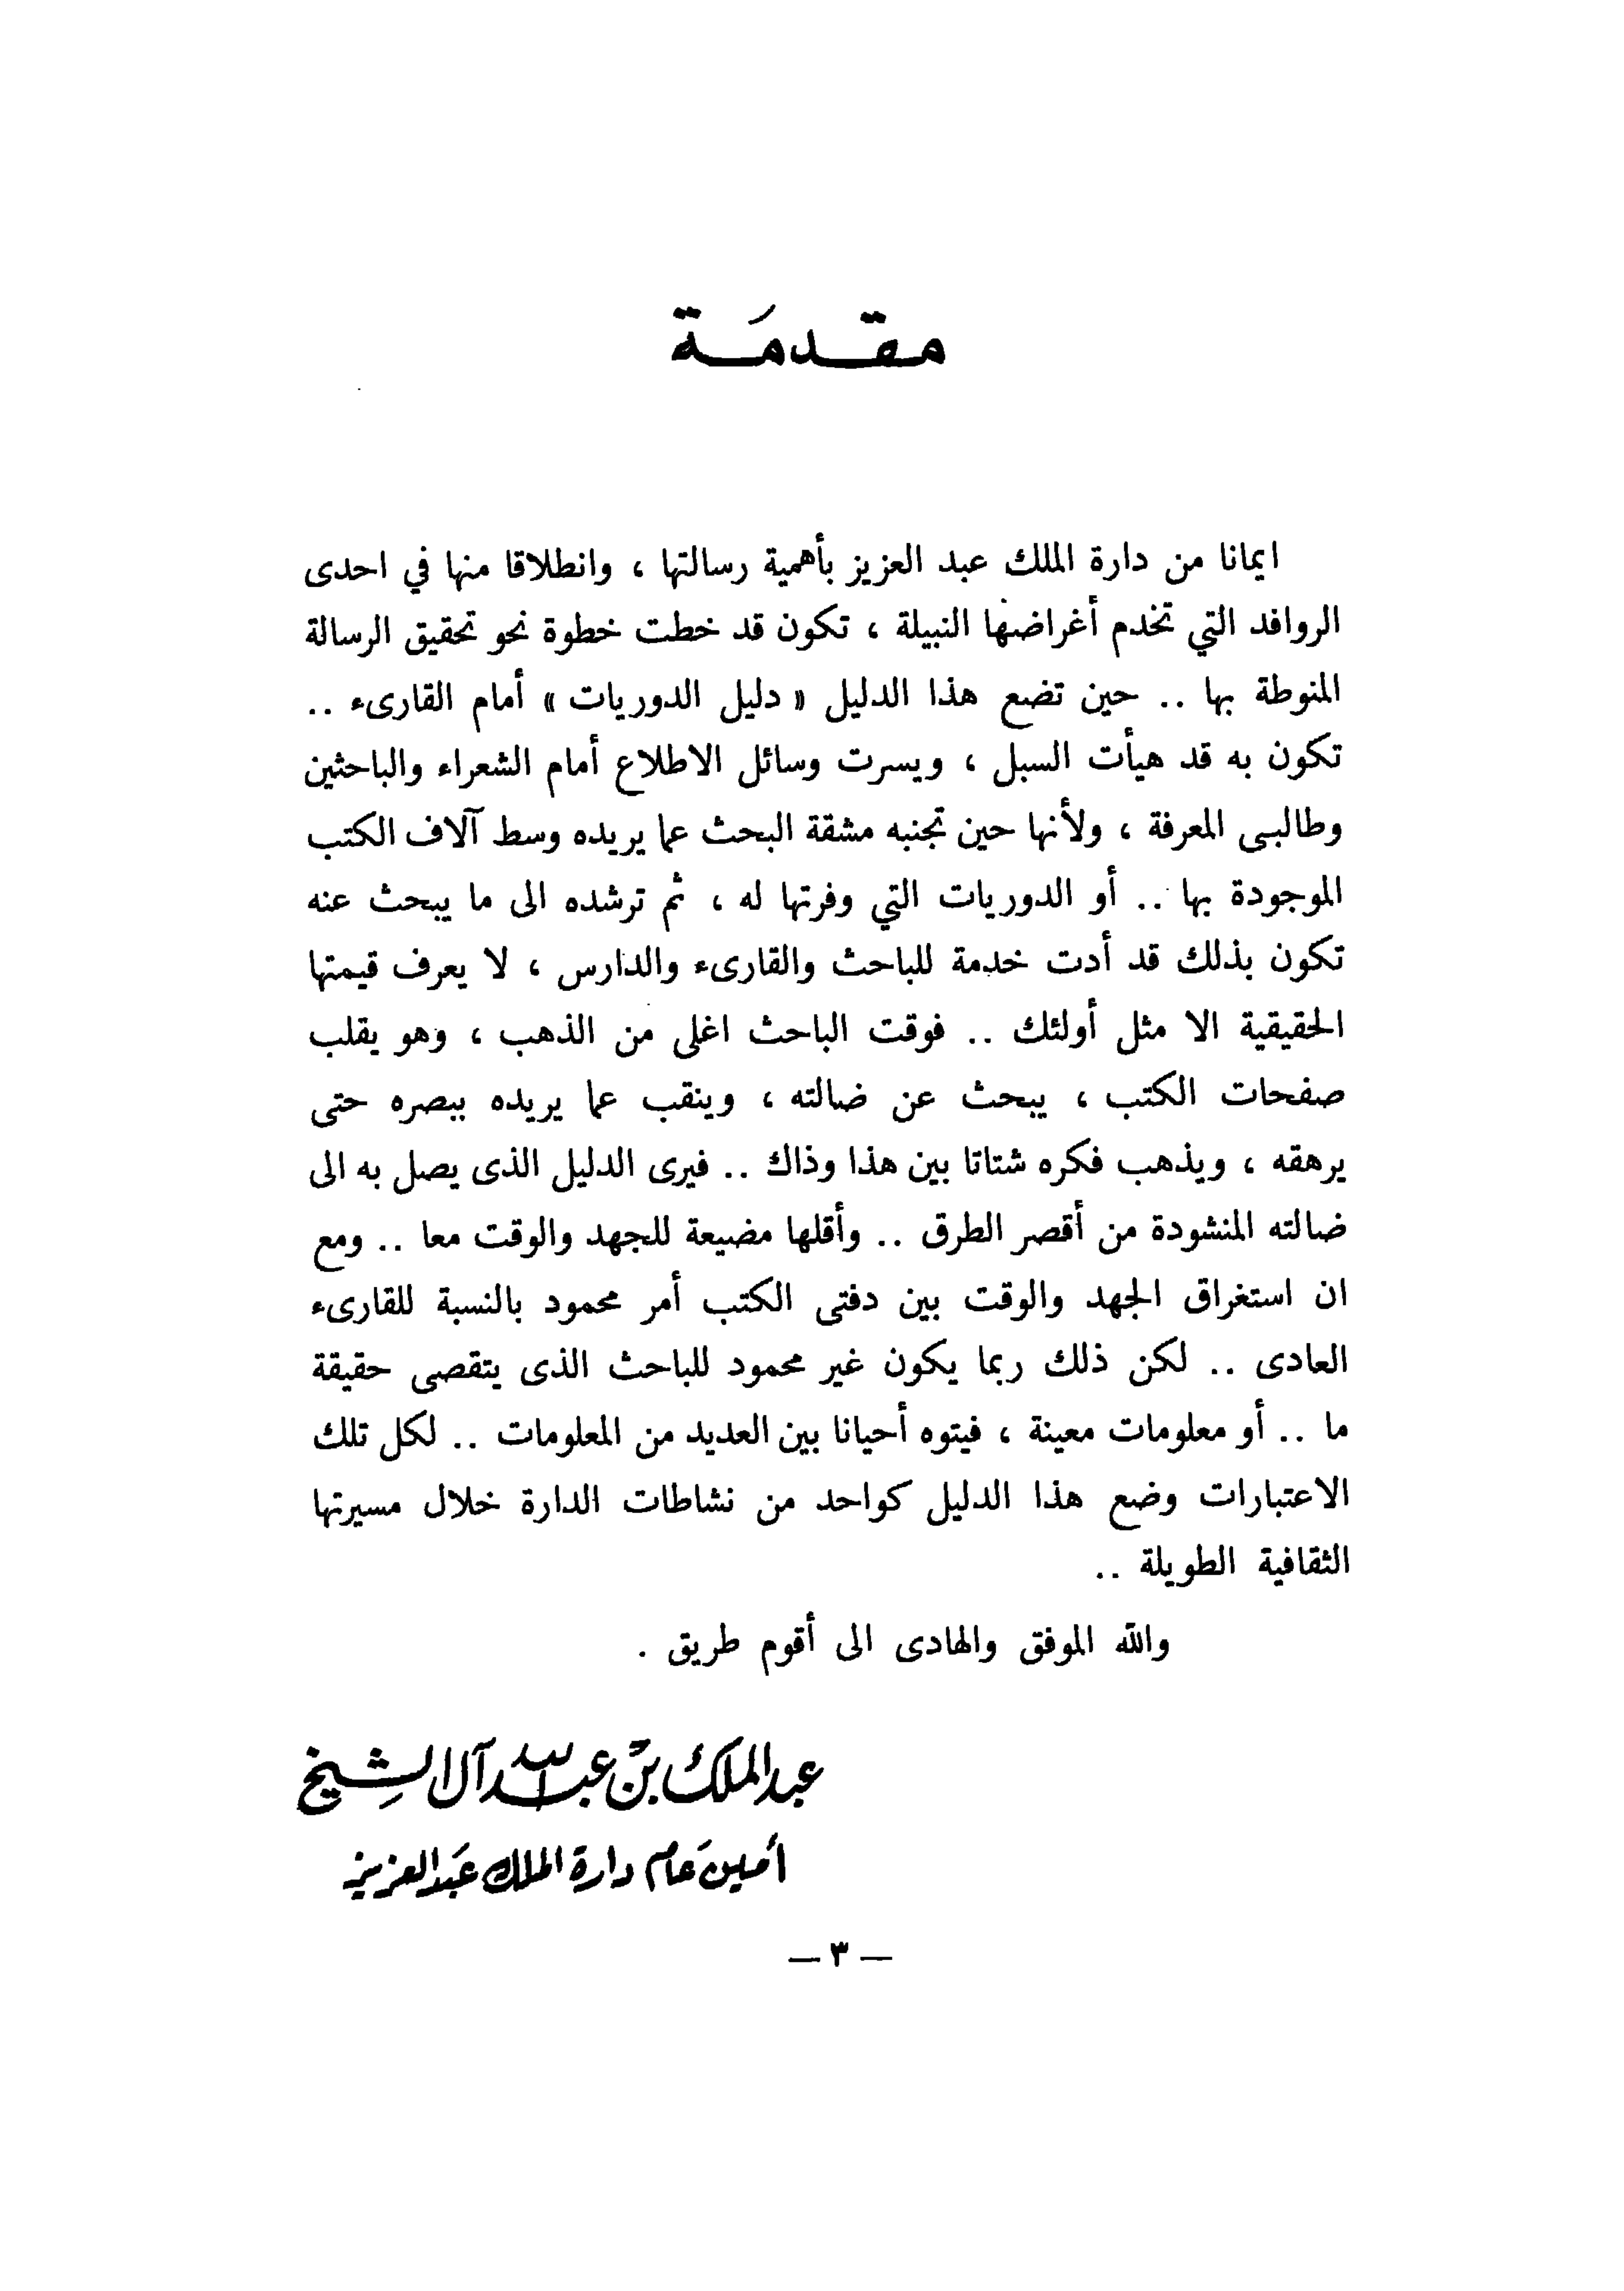 مقدمَة
ايمانا من دارة الملك عبد العزيز بأهمية رسالتها ، وانطلاقا منها في احدى
الروافد التي تخدم أغراضها النبيلة ، تكون قد خطت خطوة نحو تحقيق الرسالة
المنوطة بها .. حين تضع هذا الدليل « دليل الدوريات » أمام القارىء ..
تكون به قد هيأت السبل ، ويسرت وسائل الاطلاع أمام الشعراء والباحثين
وطالبى المعرفة ، ولأنها حين تجنبه مشقة البحث عما يريده وسط آلاف الكتب
الموجودة بها .. أو الدوريات التي وفرتها له ، ثم ترشده الى ما يبحث عنه
تكون بذلك قد أدت خدمة للباحث والقارىء والدارس ، لا يعرف قيمتها
الحقيقية الا مثل أولئك .. فوقت الباحث اغلى من الذهب ، وهو يقلب
صفحات الكتب ، يبحث عن ضالته ، وينقب عما يريده ببصره حتى
يرهقه ، ويذهب فكره شتاتا بين هذا وذاك .. فيرى الدليل الذى يصل به الى
ضالته المنشودة من أقصر الطرق .. وأقلها مضيعة للجهد والوقت معا .. ومع
ان استغراق الجهد والوقت بين دفتى الكتب أمر محمود بالنسبة للقارىء
العادى .. لكن ذلك ربما يكون غير محمود للباحث الذى يتقصى حقيقة
ما .. أو معلومات معينة ، فيتوه أحيانا بين العديد من المعلومات .. لكل تلك
الاعتبارات وضع هذا الدليل كواحد من نشاطات الدارة خلال مسيرتها
الثقافية الطويلة ..
والله الموفق والهادى الى أقوم طريق .
عبد الملك بن عبد الله آل الشيخ
أمين عام دارة الملك عبد العزيز
— ٣ —